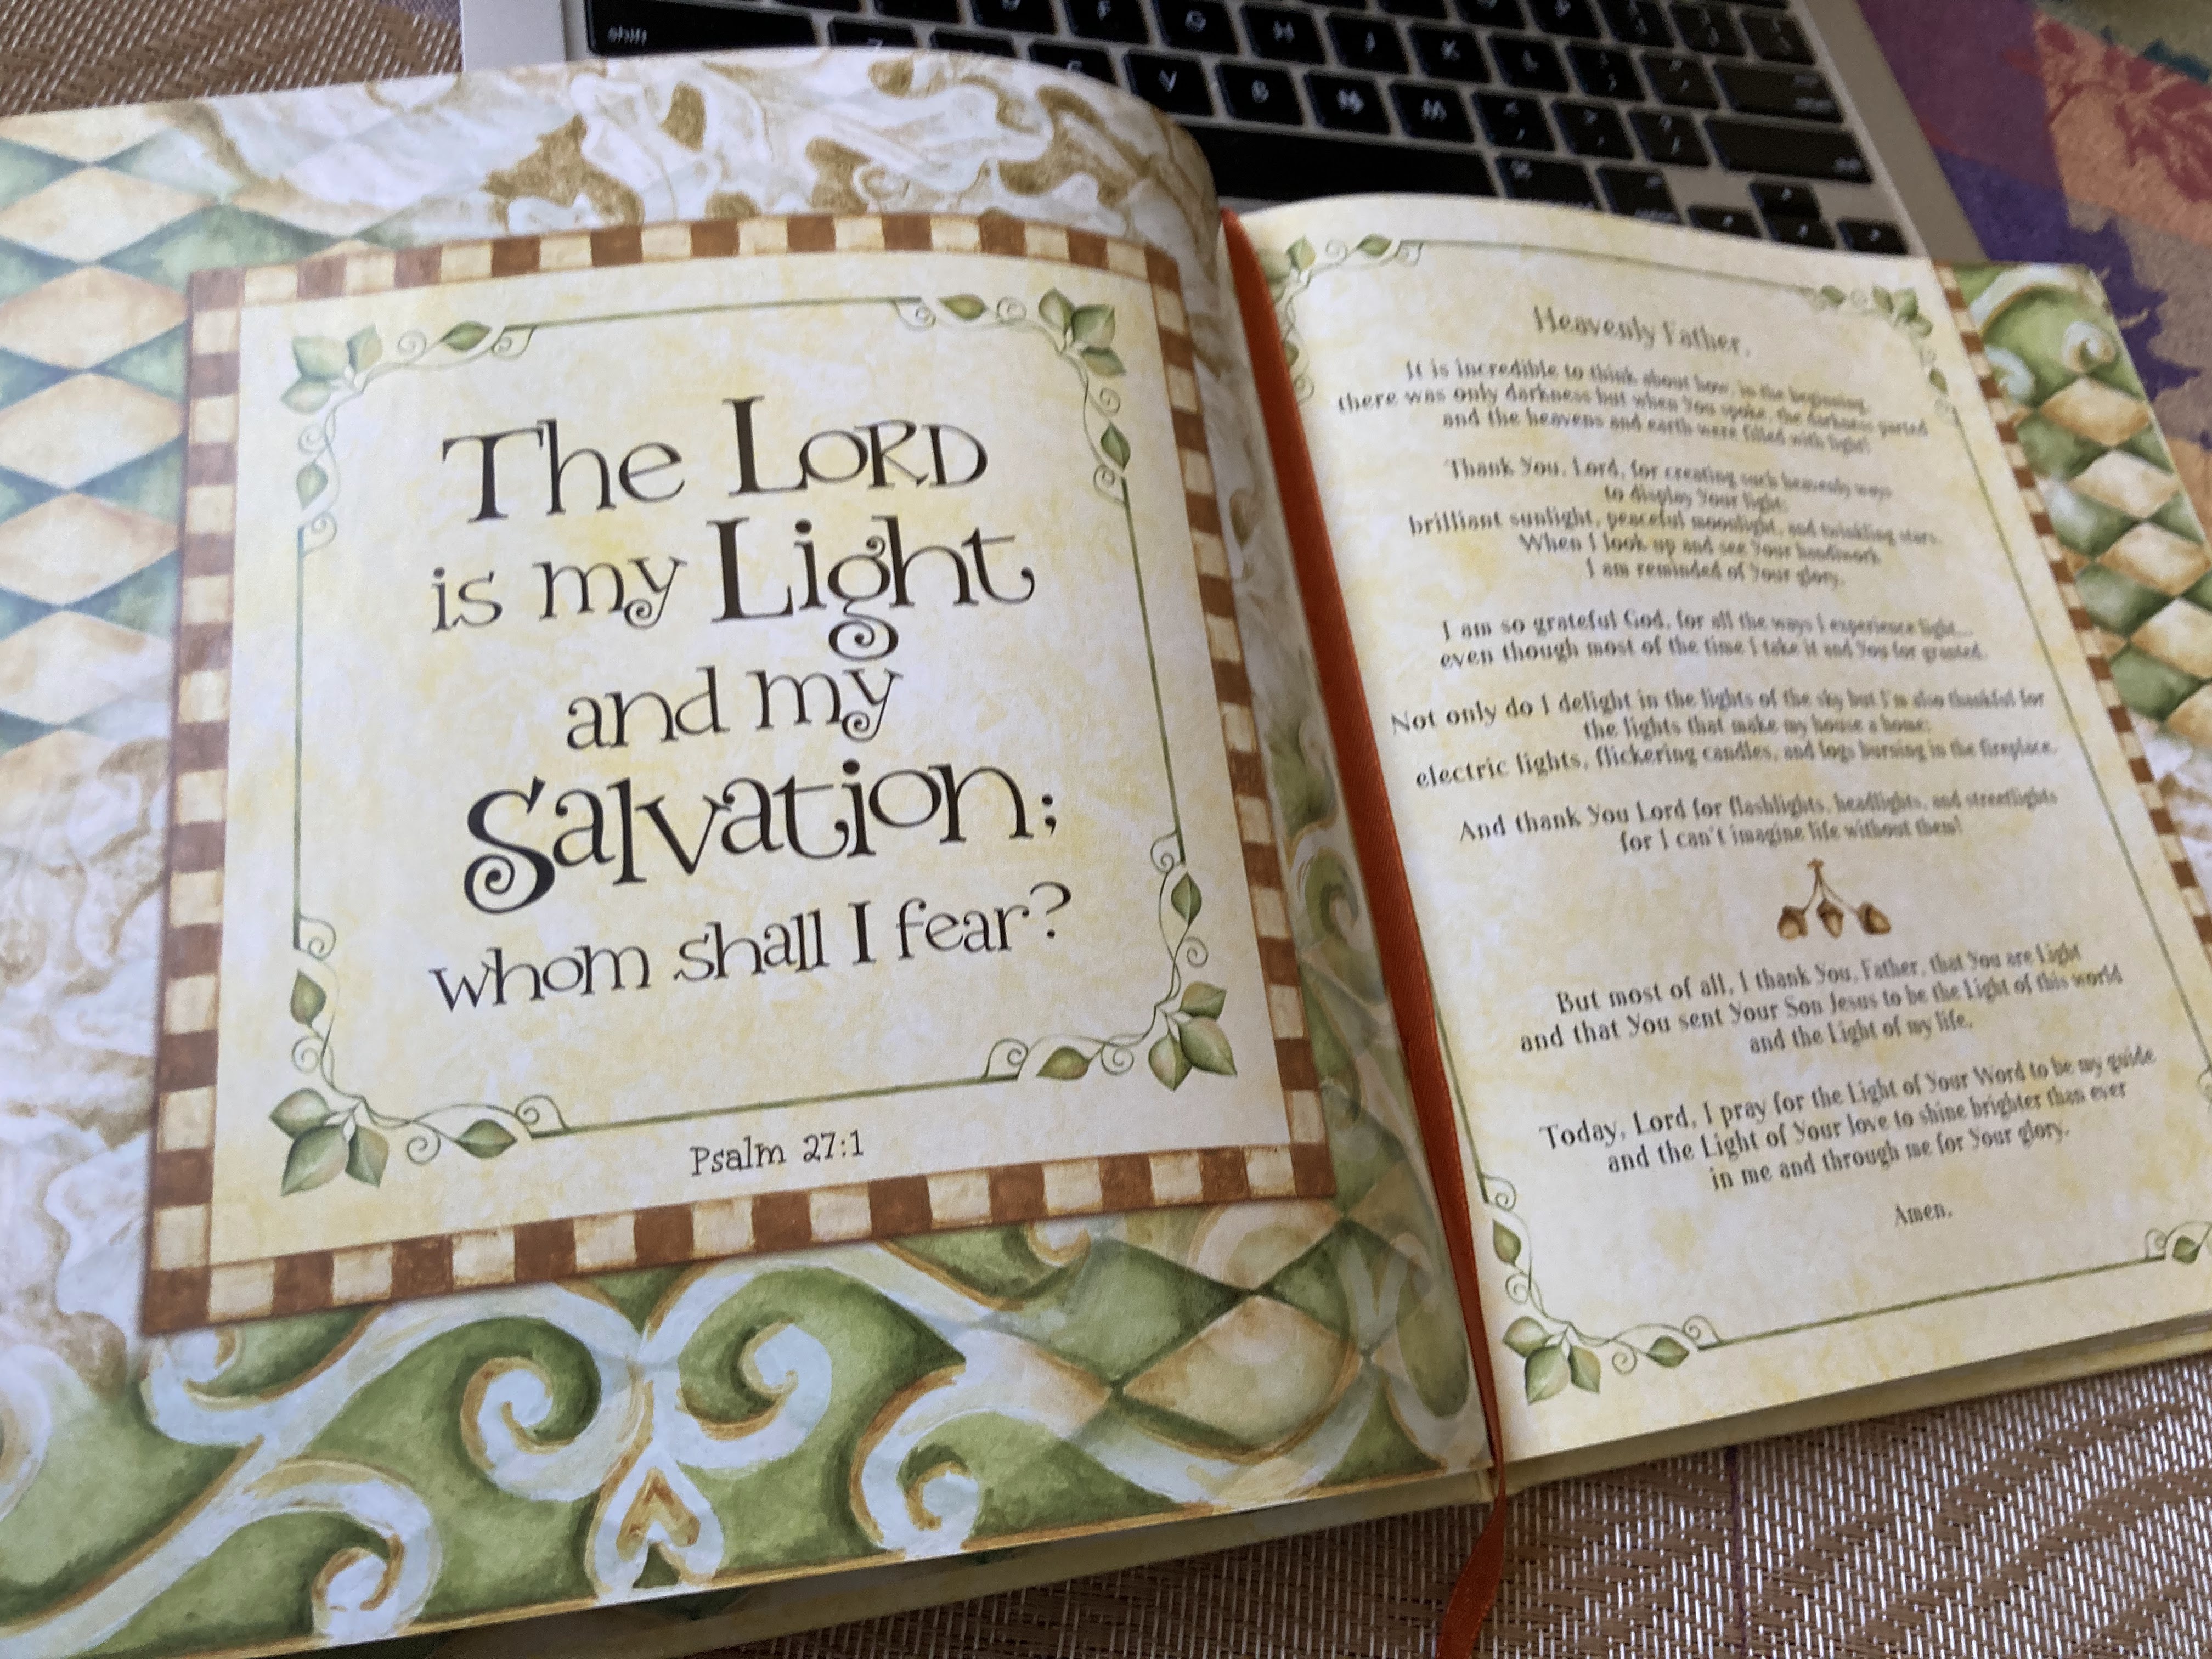 shift
F
G
H
J
K
L
V
B
N
M
The LORD
is my Light
and my
Salvation;
whom shall I fear?
Psalm 27:1
Heavenly Father,
It is incredible to think about how, in the beginning,
there was only darkness but when You spoke, the darkness parted
and the heavens and earth were filled with light!
Thank You, Lord, for creating such heavenly ways
to display Your light:
brilliant sunlight, peaceful moonlight, and twinkling stars.
When I look up and see Your handiwork
I am reminded of Your glory.
I am so grateful God, for all the ways I experience light...
even though most of the time I take it and You for granted.
Not only do I delight in the lights of the sky but I'm also thankful for
the lights that make my house a home:
electric lights, flickering candles, and logs burning in the fireplace.
And thank You Lord for flashlights, headlights, and streetlights
for I can't imagine life without them!
But most of all, I thank You, Father, that You are Light
and that You sent Your Son Jesus to be the Light of this world
and the Light of my life.
Today, Lord, I pray for the Light of Your Word to be my guide
and the Light of Your love to shine brighter than ever
in me and through me for Your glory.
Amen.